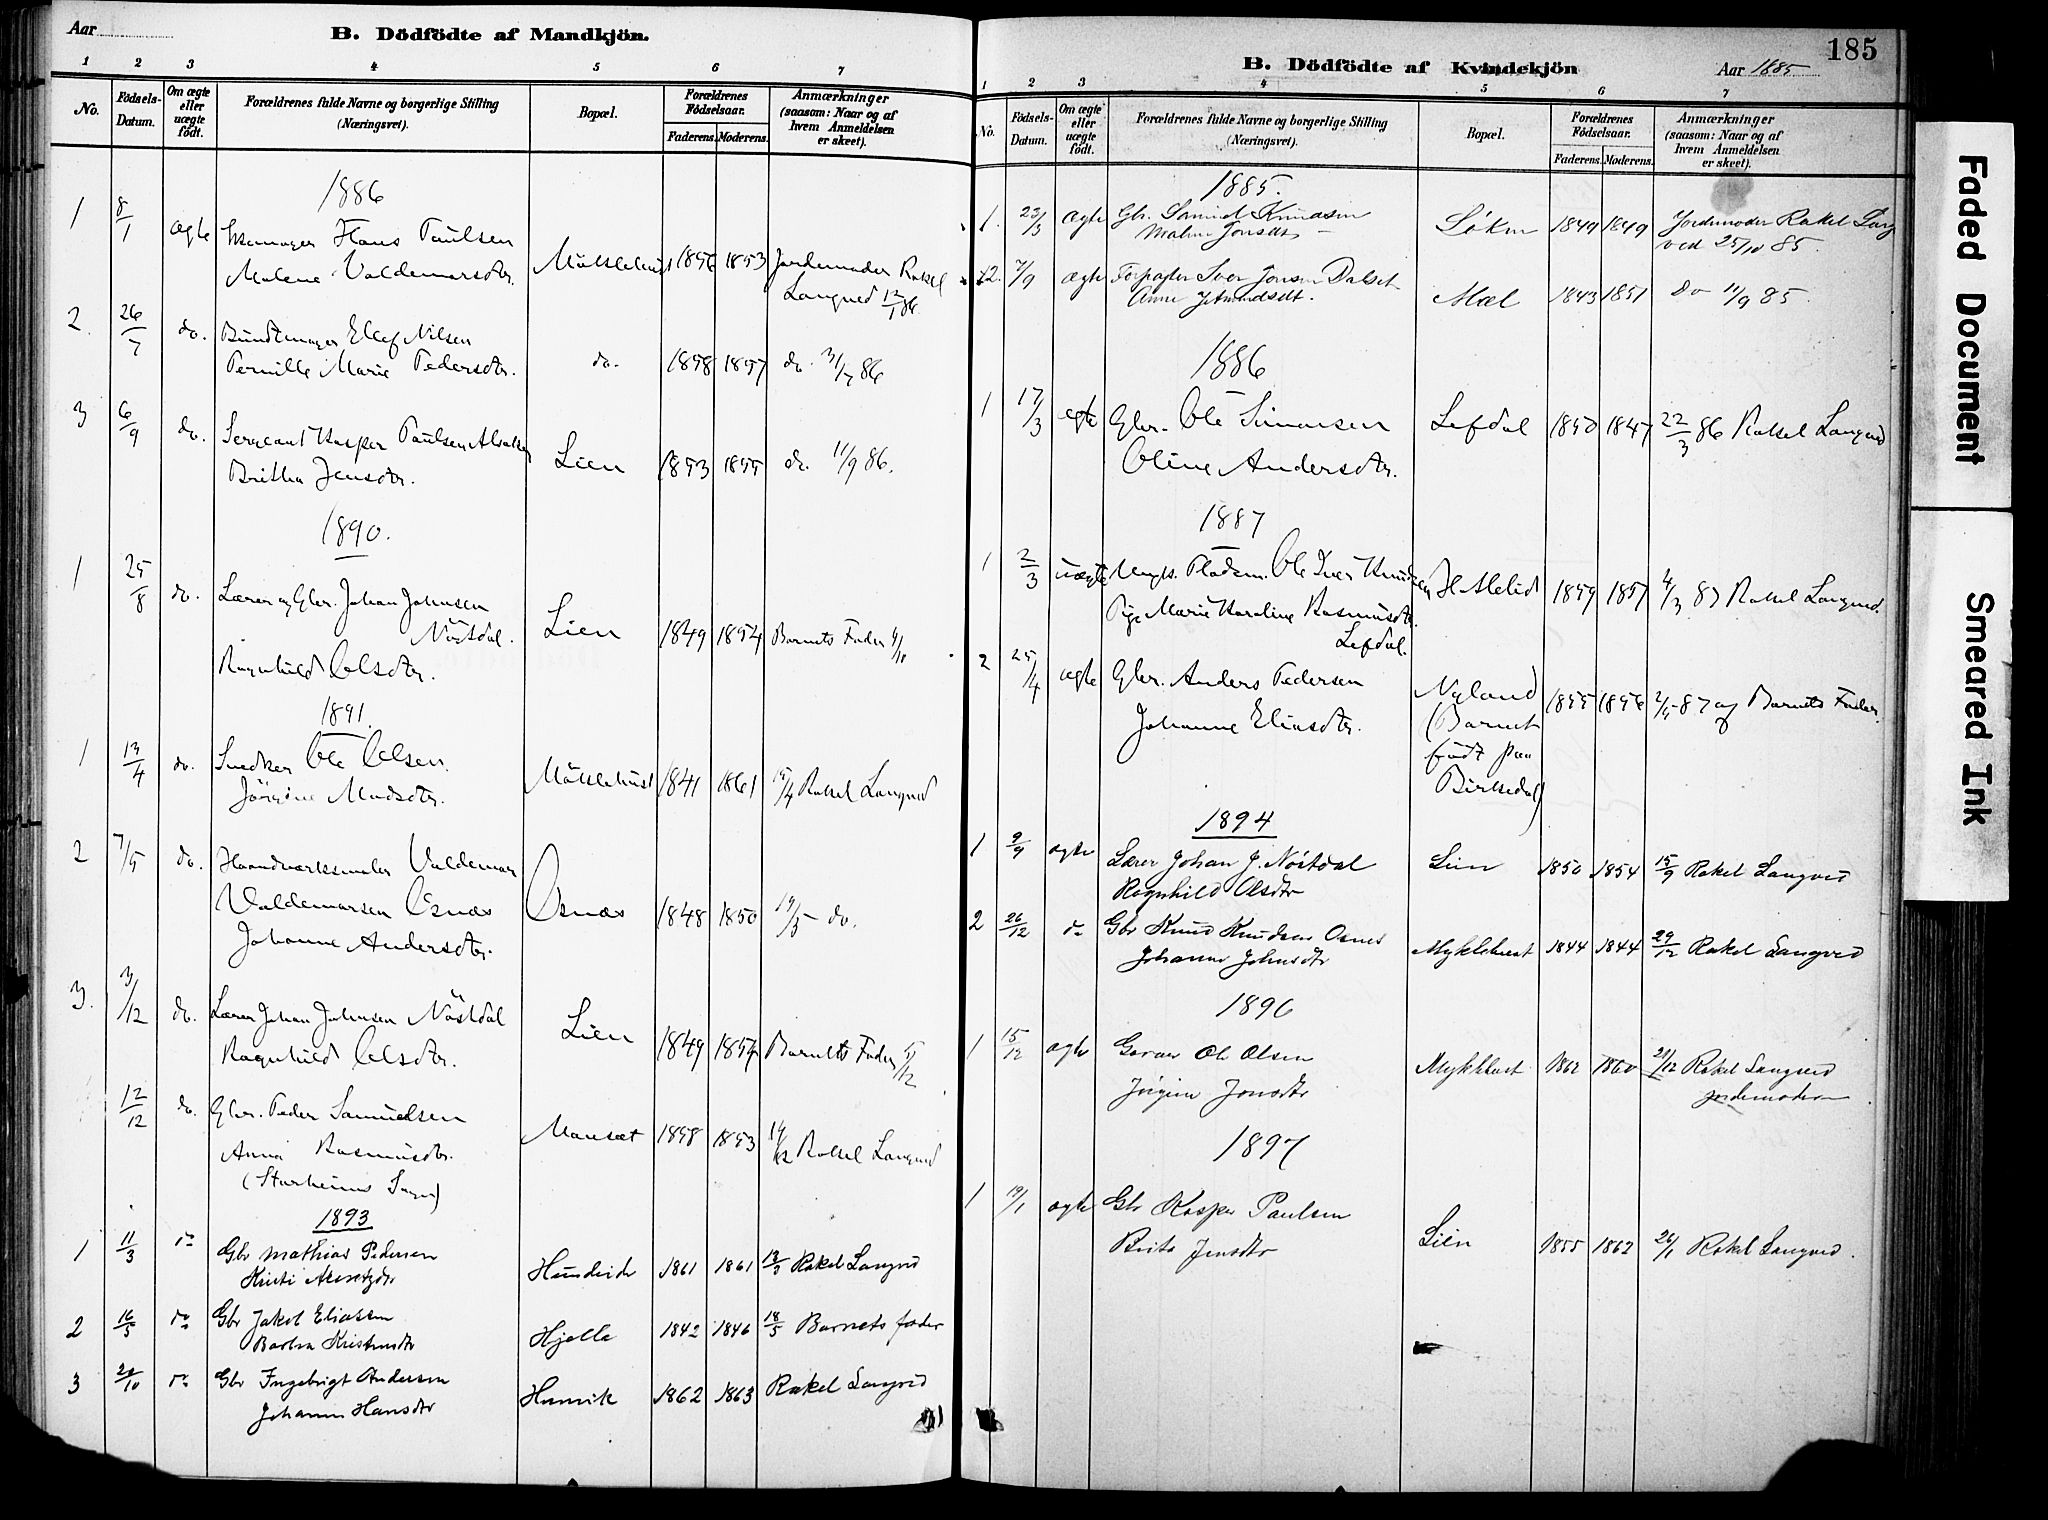 Aar
B. Dödfödte af Mandkjön.
1 2 3 4 5 6 7
No.
Födsels-Datum.
Om ægte eller uægte födt.
Forældrenes fulde Navne og borgerlige Stilling (Næringsvei).
Bopæl.
Forældrenes Födselsaar.
Faderens. Moderens.
Anmærkninger (saasom: Naar og af hvem Anmeldelsen er skeet).
1886
1 8/1 ægte Hans Paulsen
Malene Valdemarsdtr. 1853 Jordemoder Rakel
Langved 12/1 86
2. 26/7 do. Bundtmager Ellef Nilsen
Pernille Marie Pedersdtr. do. 1858 1857 do. 31/7 86
3 6/9 do. Sergeant Kasper Paulsen
Britha Jensdtr. Lien 1853 1855 do. 11/9 86.
1890.
1 25/8 do. Lærer og Gbr. Johan Johnsen
Nöstdal. Lien 1849 1854 Barnets Fader
Ragnhild Olsdtr.
1891.
1 13/4 do. Snedker Ole Olsen.
Jörgine Madsdtr. 1841 1861 15/4 Rakel Langved
2 7/5 do. Valdemar
Valdemarsen Osnæs Osnæs 1848 1850 19/5 do.
Johanne Andersdtr.
3. 3/12 do. Lærer Johan Johnsen Nöstdal
Ragnhild Olsdtr. Lien 1849 1854 Barnets Fader 5/12
12/12 do. Gbr. Peder Samuelsen
Anna Rasmusdtr. Maurset 1858 1853 14/12 Rakel Langved
(Starheims Sogn)
1893
1 11/3 do Gbr Mathias Pedersen
Kristi 1861 1861 13/3 Rakel Langved
2 16/5 do Gbr Jakob Eliassen
Barbra Hjelle 1842 1846 18/5 Barnets fader
3 do Gbr Ingebrigt Andersen
Johanne Hansdtr Hunvik 1862 1863 Rakel Langved
B. Dödfödte af Kvindekjön
Aar 1885
185
1 2 3 4 5 6 7
No.
Födsels-Datum.
Om ægte eller uægte födt.
Forældrenes fulde Navne og borgerlige Stilling (Næringsvei).
Bopæl.
Forældrenes Födselsaar.
Faderens. Moderens.
Anmærkninger (saasom: Naar og af hvem Anmeldelsen er skeet).
1885.
1. 23/3 ægte Gbr. Samuel Knudsen
Malene Jonsdtr 1849 1849 Jordemoder Rakel Lang
ved 85.
2. 7/9 ægte Forpagter Iver Jonsen Dalset
Anne Mæl 1843 1851 do 11/9 85.
1886
1 17/3 ægte Gbr. Ole Simonsen
Oline Andersdtr. Lefdal 1850 1847 22/3 86 Rakel Langved
1887
1 2/3 uægte Ungk. Pladsm. Ole Iver Knudsen
Pige Marie Karoline Rasmusdtr.
Lefdal. 1859 1857 4/3 87 Rakel Langved.
2 25/4 ægte Gbr. Anders Pedersen
Johanne Eliasdtr. Nyland
(Barnet
födt paa
Birkedal) 1855 1856 87 af Barnets Fader.
1894
1 9/9 ægte Lærer Johan J. Nöstdal
Ragnhild Olsdtr Lien 1850 1854 15/9 Rakel Langved
2 26/12 do Gbr Knud Knudsen Osnes
Johanne Johnsdtr Myklebust 1844 1844 29/12 Rakel Langved
1896
1 15/12 ægte Garver Ole Olsen
Jörgine Jonsdtr Myklebust 1862 1860 21/12 Rakel Langved
jordemoder
1897
1 19/1 ægte Gbr Kasper Paulsen
Brita Jensdtr Lien 1855 1862 26/1 Rakel Langved.
Faded Document
Smeared Ink